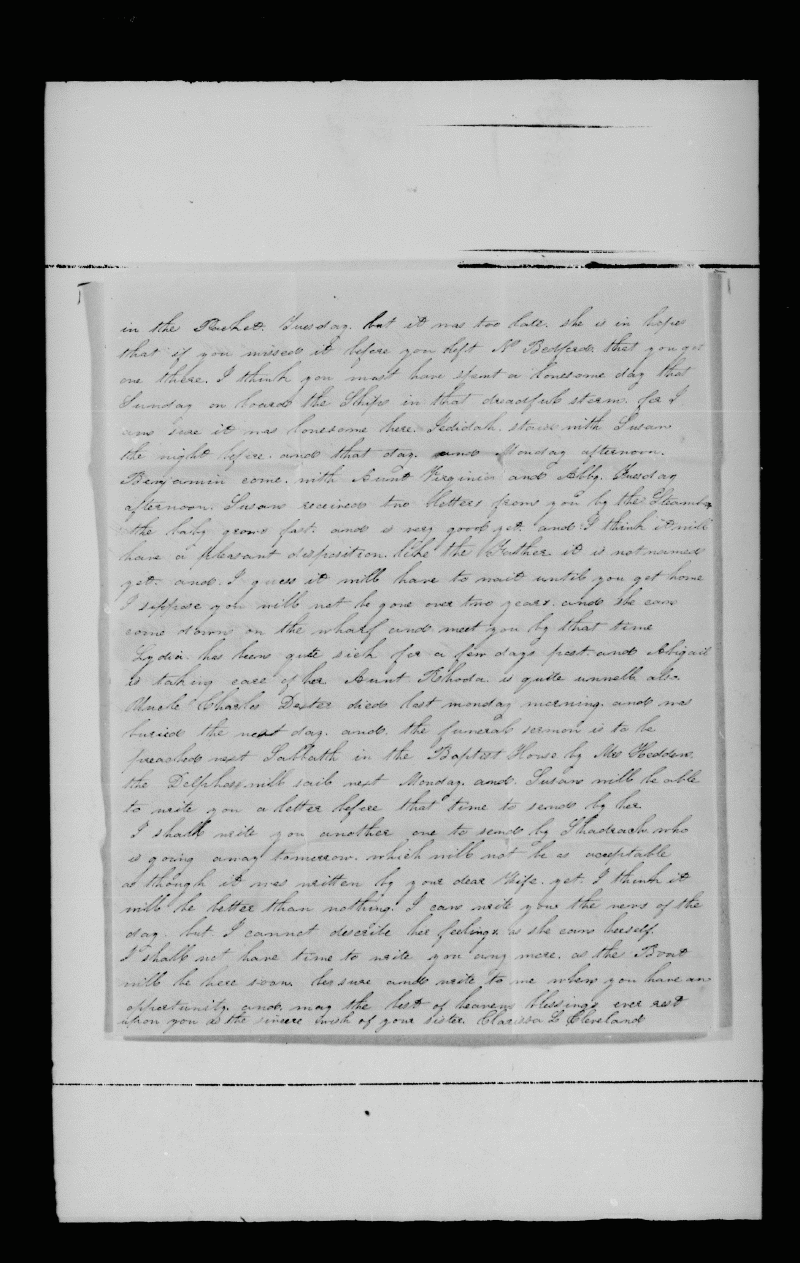 in the Packet. Tuesday. but it was too late. she is in hopes
that if you missed it before you left N. Bedford. that you got
one there. I think you must have spent a lonesome day that
Sunday on board the Ship in that dreadful storm. for I
am sure it was lonesome here. Jedidah. staid with Susan
the night before. and that day. and Monday afternoon.
Benjamin come. with Aunt Virginia and Abby. Tuesday
afternoon. Susan received two letters from you by the Steamboat
the baby grows fast. and is very good yet. and I think it will
have a pleasant desposition. like the Father it is not named
yet. and. I guess it will have to wait until you get home
I suppose you will not be gone over two years. and she can
come down on the wharf and meet you by that time
Lydia. has been quite sick for a few days past. and Abigail
is taking care of her Aunt Rhoda. is quite unwell also
Uncle Charles Dexter died last monday morning. and was
buried the next day. and. the funeral sermon is to be
preached next Sabbath in the Baptist House by Mr Hedden.
the Delphos will sail next Monday. and. Susan will be able
to write you a letter before that time to send by her
I shall write you another one to send by Shadrach. who
is going away tomorrow. which will not be as acceptable
as though it was written by your dear Wife. yet. I think it
will be better than nothing. I can write you the news of the
day. but. I cannot describe her feelings as she can herself.
I shall not have time to write you any more. as the Boat
will be here soon. be sure and write to me when you have an
opportunity. and. may the best of heavens blessings ever rest
upon you is the sincere wish of your sister. Clarissa L Cleveland